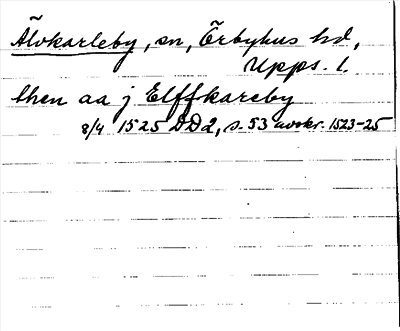 Älvkarleby, sn, Örbyhus hd,
Upps. l.
then aa j Elffkareby
8/4 1525 DD2, s. 53 avskr. 1523-25